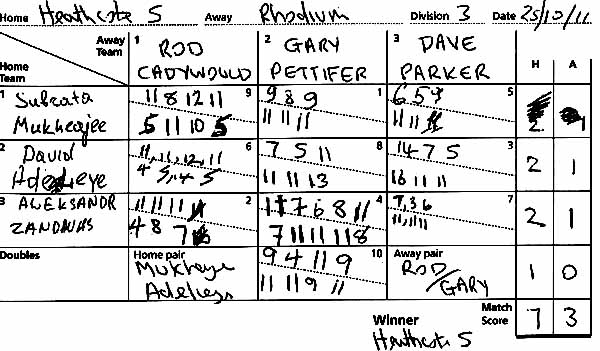 Home Heathcote 5 Away Rhodium Division 3 Date 25/10/11
Away Team 1 ROD CADYWOULD 2 GARY PETTIFER 3 DAVE PARKER H A
Home Team
1 Subrata Mukherjee 9 1 5 2
11 8 12 11 9 8 9 6 5 9
5 11 10 5 11 11 11 11 11 11
2 David Adeleye 6 8 3 2 1
11, 11, 12, 11 7 5 11 14 7 5
4 5, 14 5 11 11 13 16 11 11
3 ALEKSANDR ZANDAVAS 2 4 7 2 1
11 11 11 11 7 6 8 11 7, 3 6
4 8 7 7 11 11 11 8 11, 11, 11
Doubles Home pair Mukherjee Adeleye 10 Away pair ROD/GARY 1 0
9 4 11 9
11 11 9 11
Winner Heathcote 5 Match Score 7 3